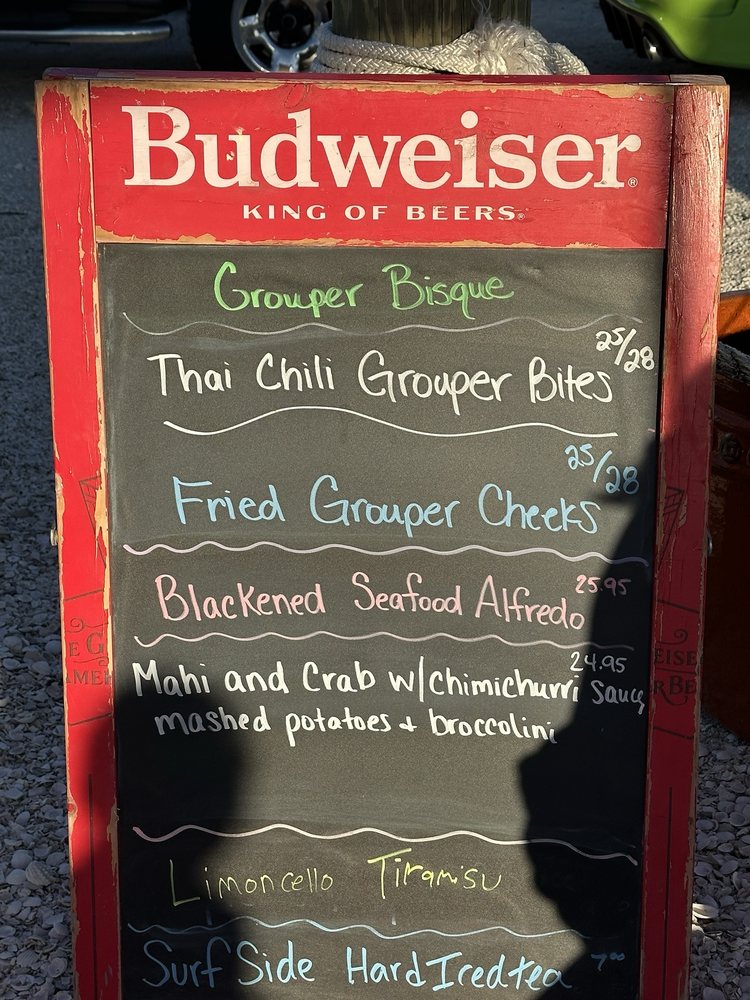 Budweiser®
KING OF BEERS®
Grouper Bisque
25/28
Thai Chili Grouper Bites
25/28
Fried Grouper Cheeks
25.95
Blackened Seafood Alfredo
24.95
Mahi and Crab w/chimichurri sauce
mashed potatoes + broccolini
Limoncello Tiramisu
Surf Side Hard Iced tea 7.00